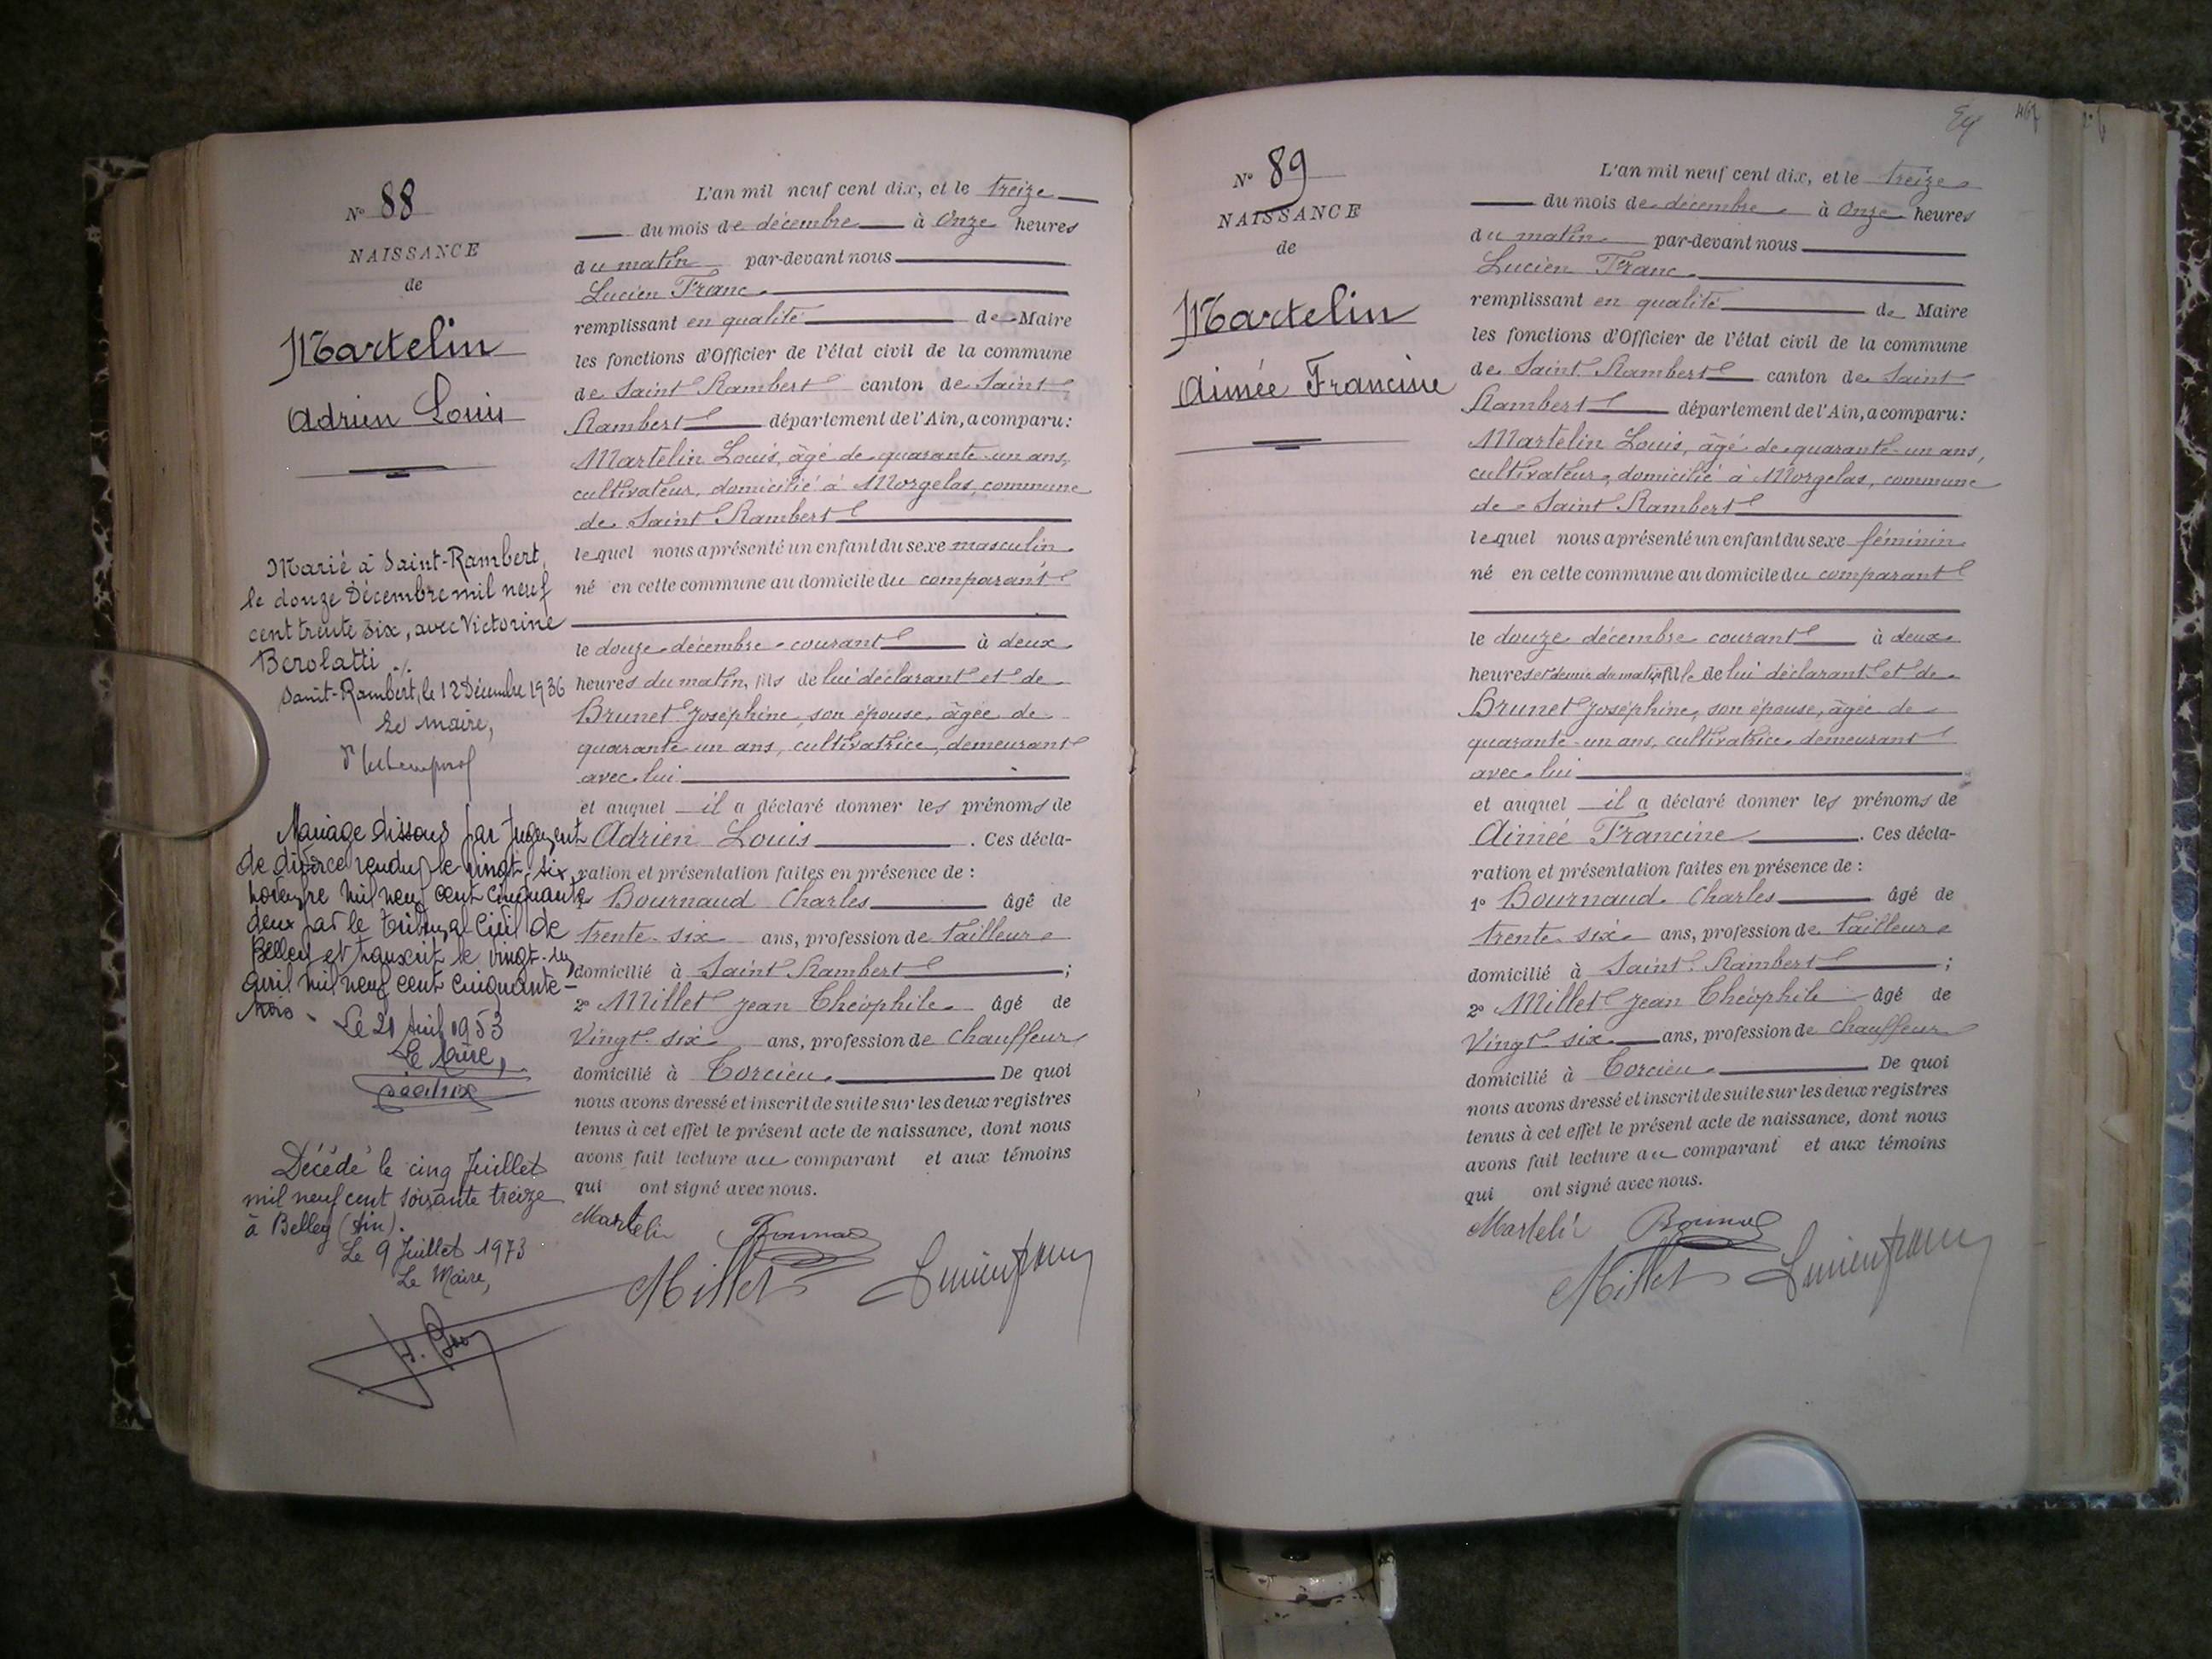 N° 88
NAISSANCE
de
Martelin
Adrien Louis
Marié à Saint-Rambert,
le douze Décembre mil neuf
cent trente six, avec Victorine
Berolatti ./.
Saint-Rambert, le 12 Décembre 1936
Le maire,
Mariage dissous par Jugement
de divorce rendu le vingt-six
novembre mil neuf cent cinquante
deux par le tribunal civil de
Belley et transcrit le vingt-un
avril mil neuf cent cinquante-
trois - Le 21 Avril 1953
Le Maire,
Décédé le cinq Juillet
mil neuf cent soixante treize
à Belley (Ain).
Le 9 Juillet 1973
Le Maire,
L'an mil neuf cent dix, et le treize
du mois de décembre à Onze heures
du matin par-devant nous
Lucien Franc
remplissant en qualité de Maire
les fonctions d'Officier de l'état civil de la commune
de Saint Rambert canton de Saint
Rambert département de l'Ain, a comparu:
Martelin Louis, âgé de quarante-un ans,
cultivateur, domicilié à Morgelas, commune
de Saint Rambert
lequel nous a présenté un enfant du sexe masculin
né en cette commune au domicile du comparant
le douze décembre courant à deux
heures du matin, fils de lui déclarant et de
Brunet Joséphine, son épouse, âgée de
quarante un ans, cultivatrice, demeurant
avec lui
et auquel il a déclaré donner les prénoms de
Adrien Louis . Ces décla-
ration et présentation faites en présence de :
1° Bournaud Charles âgé de
trente-six ans, profession de tailleur
domicilié à Saint Rambert ;
2° Millet Jean Théophile âgé de
Vingt-six ans, profession de Chauffeur
domicilié à Torcieu De quoi
nous avons dressé et inscrit de suite sur les deux registres
tenus à cet effet le présent acte de naissance, dont nous
avons fait lecture au comparant et aux témoins
qui ont signé avec nous.
Martelin
Millet Lucien Franc
N° 89
NAISSANCE
de
Martelin
Aimée Francine
L'an mil neuf cent dix, et le treize
du mois de décembre à Onze heures
du matin par-devant nous
Lucien Franc
remplissant en qualité de Maire
les fonctions d'Officier de l'état civil de la commune
de Saint Rambert canton de Saint
Rambert département de l'Ain, a comparu:
Martelin Louis, âgé de quarante-un ans,
cultivateur, domicilié à Morgelas, commune
de Saint Rambert
lequel nous a présenté un enfant du sexe féminin
né en cette commune au domicile du comparant
le douze décembre courant à deux
heures et demie du matin, fille de lui déclarant et de
Brunet Joséphine, son épouse, âgée de
quarante-un ans, cultivatrice, demeurant
avec lui
et auquel il a déclaré donner les prénoms de
Aimée Francine . Ces décla-
ration et présentation faites en présence de :
1° Bournaud Charles âgé de
trente-six ans, profession de tailleur
domicilié à Saint Rambert ;
2° Millet Jean Théophile âgé de
Vingt-six ans, profession de Chauffeur
domicilié à Torcieu De quoi
nous avons dressé et inscrit de suite sur les deux registres
tenus à cet effet le présent acte de naissance, dont nous
avons fait lecture au comparant et aux témoins
qui ont signé avec nous.
Martelin
Millet Lucien Franc